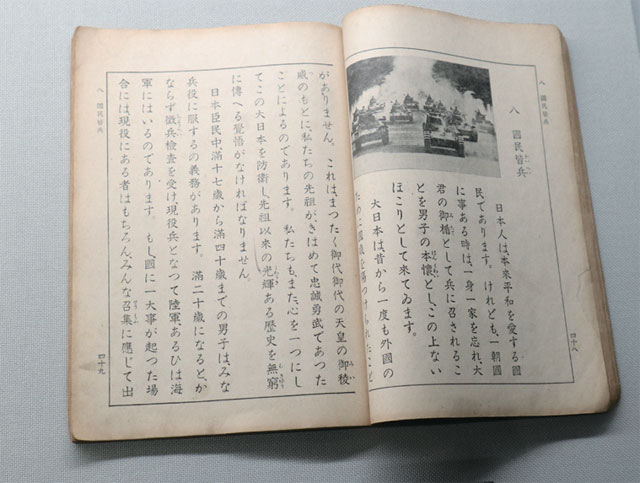 八 國民皆兵
四十八
八 國民皆兵
日本人は本來平和を愛する國
民であります。けれども、一朝國
に事ある時は、一身一家を忘れ、大
君の御楯として兵に召されるこ
とを男子の本懷とし、この上ない
ほこりとして來てゐます。
大日本は、昔から一度も外國の
ために國威を傷つけられたこと
がありません。これは、まつたく御代御代の天皇の御稜
威のもとに、私たちの先祖が、きはめて忠誠勇武であつた
ことによるのであります。私たちも、また、心を一つにし
てこの大日本を防衞し、先祖以來の光輝ある歷史を無窮
に傳へる覺悟がなければなりません。
日本臣民中滿十七歲から滿四十歲までの男子は、みな
兵役に服するの義務があります。滿二十歲になると、か
ならず徵兵檢査を受け、現役兵となつて陸軍、あるひは海
軍にはいるのであります。もし、國に一大事が起つた場
合には、現役にある者はもちろん、みんな召集に應じて出
八 國民皆兵
四十九